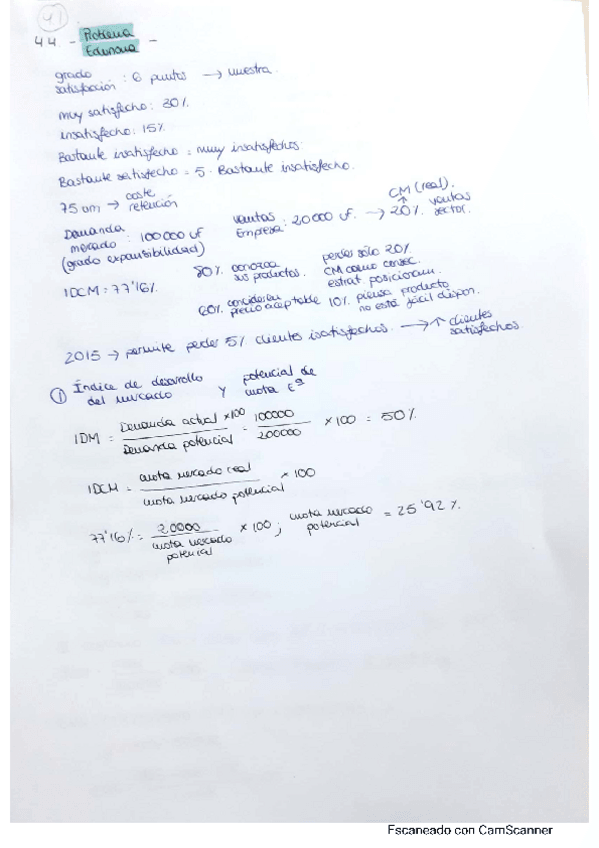 41
44. - Problema
Edunova -
grado
satisfacción : 6 puntos → muestra.
muy satisfecho: 30%.
insatisfecho: 15%.
Bastante insatisfecho = muy insatisfechos.
Bastante satisfecho = 5 · Bastante insatisfecho.
75 um → coste
retención
Demanda
mercado : 100000 uf
(grado expansibilidad)
ventas
Empresa : 20000 uf. → 20% ventas
sector.
CM (real).
IDCM = 77'16%
80% conozca
sus productos.
perder sólo 20%
CM como consec.
estrat posicionam.
60% consideran
precio aceptable
10% piensa producto
no está fácil dispon.
2015 → permite perder 5% clientes insatisfechos. → ↑ clientes
satisfechos.
① Índice de desarrollo
del mercado y potencial de
cuota Eª
IDM = Demanda actual ×100 / Demanda potencial = 100000 / 200000 × 100 = 50%
IDCM = cuota mercado real / cuota mercado potencial × 100
77'16% = 20000 / cuota mercado potencial × 100 ; cuota mercado potencial = 25'92%.
Escaneado con CamScanner